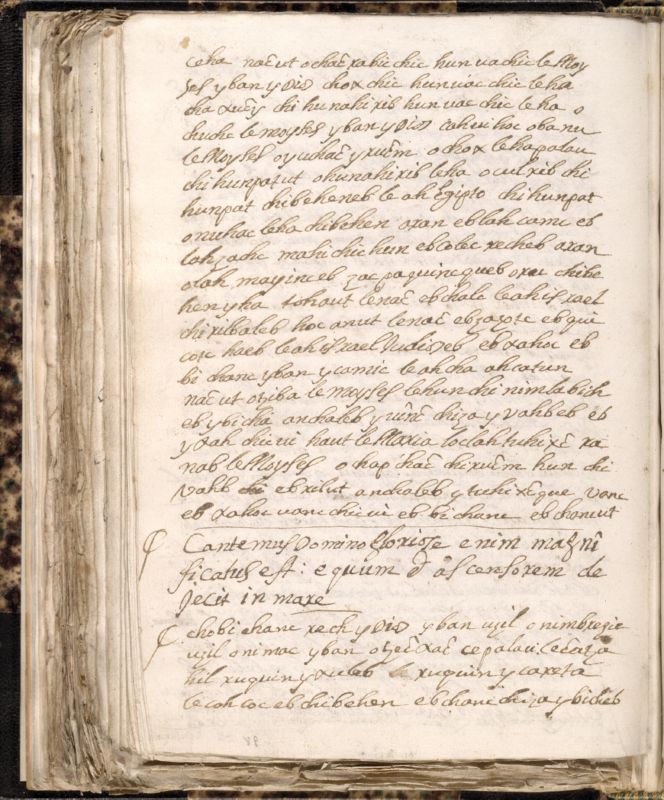 ceha naēut ochaēxabic chic hun uachic le Moy
ses yban y Dios chox chic hun uac chic le ha
cha xuc̄y chi hunahixib hun uac chic le ha o
chuchc le moyses yban y Dios cahui hoc obanu
le Moyses oyuchaē yxuēm. ochox le hapalau
chi hunpatut ohunahixib le ha oculxib chi
hunpat chibeheneb le ah Egipto chi hunpat
onuhac le ha chibehen oxan eblah camc eb
lah zachc mahi chic hun eb colec xecheb oxan
olah. mayinceb zac paquincqueb oxec chibe
henyha tohaut lenaē ebchalc leah isxael
chixibaleb hoc anut lenaē ebzazpte eb qui
cotc haeb leah isxael Judiozeb eb xahoc eb
bi chanc yban ycamic le ahcha ahcatun
naēut otziba le moyses lehunchi nim labich
eb ybicha anchaleb yuīnē chiza y vahb eb eb
yxah chiui haut le Maxia loclah tuhixē xa
nab le Moyses ohap'chaē chixuēm hun chi
vahb chi ebxelut anchaleb ytechixēque vanc
eb xahoc vanc chiui eb bi chanc ebchancut
Cantemus Domino Gloriose enim magni
ficatus est: equum & ascensorem de
Jecit in mare
chobi chanc xech y Dios yban uzil onimbrezic
uzil onimac yban otzeēxaē ce palau le caza
hil xuquin yxuleb le xuquin ycaxeta
le coh coc eb chi behen eb chanc chiza y bicheb
98